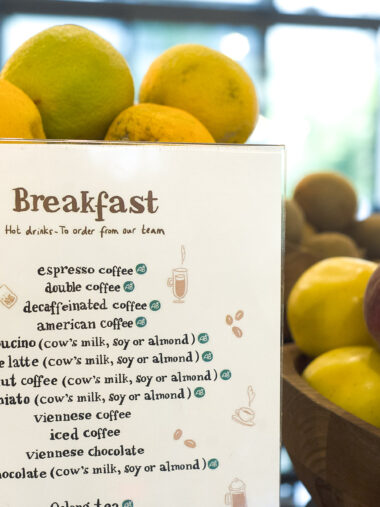 Breakfast
Hot drinks - To order from our team
espresso coffee
double coffee
decaffeinated coffee
american coffee
pucino (cow's milk, soy or almond)
latte (cow's milk, soy or almond)
ut coffee (cow's milk, soy or almond)
iato (cow's milk, soy or almond)
viennese coffee
iced coffee
viennese chocolate
hocolate (cow's milk, soy or almond)